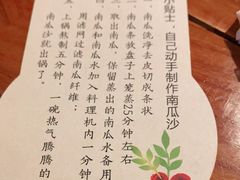 小贴士，自己动手制作南瓜沙
一、南瓜洗净去皮切成条状
二、南瓜条放盘子上笼蒸25分钟左右
三、取出南瓜，保留蒸出的南瓜水备用
四、南瓜和南瓜水加入料理机内一分钟
用滤网过滤南瓜纤维；
五、上锅熬制五分钟，一碗热气腾腾的
南瓜沙就出锅了。